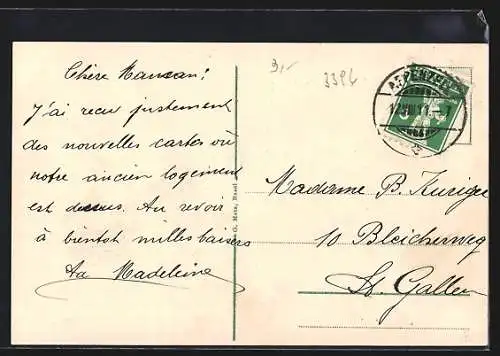 Chère Maman!
J'ai reçu justement
des nouvelles cartes où
notre ancien logement
est dessus. Au revoir
à bientôt milles baisers
ta Madeleine
3,-
3394
APPENZELL
G. Metz, Basel
Madame B.
10 Bleicherweg
St. Gallen